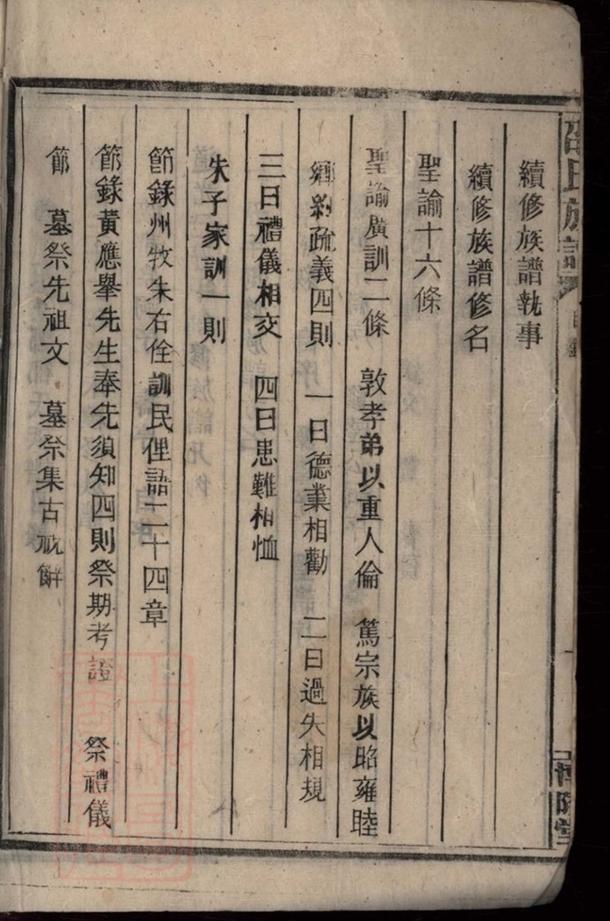 邵氏族譜
博陵堂
續修族譜執事
續修族譜修名
聖諭十六條
聖諭廣訓二條 敦孝弟以重人倫 篤宗族以昭雍睦
鄉約疏義四則 一曰德業相勸 二曰過失相規
三曰禮儀相交 四曰患難相恤
朱子家訓一則
節錄州牧朱右佺訓民俚語二十四章
節錄黃應舉先生奉先須知四則祭期考証 祭禮儀
節 墓祭先祖文 墓祭集古祝辭